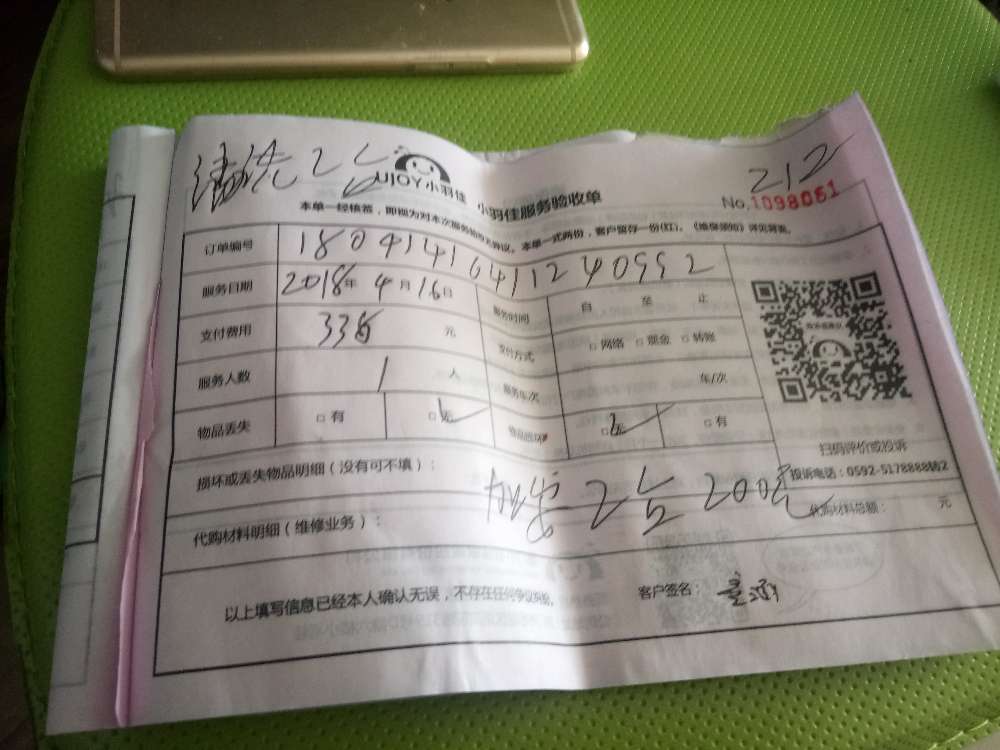 清洗2台
212
UJOY小羽佳 小羽佳服务验收单
No.1098061
本单一经核签，即视为对本次服务验收无异议。本单一式两份，客户留存一份(红)。《维修须知》详见背面。
订单编号 18041416411240992
服务日期 2018年4月16日 服务时间 自 至 止
支付费用 336元 支付方式 □网络 □现金 □转账
服务人数 1人 服务车次 车/次
物品丢失 □有 □无 物品损坏 □无 □有
扫码评价或投诉
投诉电话：0592-5178888转2
损坏或丢失物品明细（没有可不填）：
2台200元
代购材料明细（维修业务）： 代购材料总额： 元
以上填写信息已经本人确认无误，不存在任何争议纠纷。 客户签名：